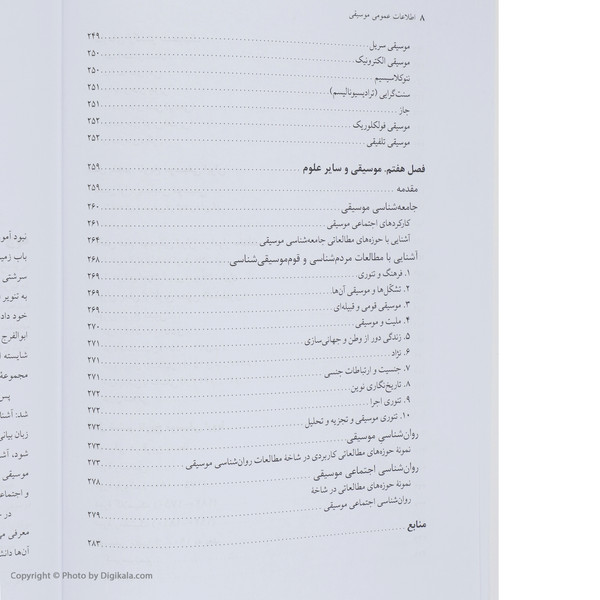 ۸ اطلاعات عمومی موسیقی
موسیقی سریل ۲۴۹
موسیقی الکترونیک ۲۵۰
نئوکلاسیسیم ۲۵۰
سنت‌گرایی (ترادیسیونالیسم) ۲۵۱
جاز ۲۵۱
موسیقی فولکلوریک ۲۵۲
موسیقی تلفیقی ۲۵۲
فصل هفتم. موسیقی و سایر علوم ۲۵۹
مقدمه ۲۵۹
جامعه‌شناسی موسیقی ۲۶۰
کارکردهای اجتماعی موسیقی ۲۶۱
آشنایی با حوزه‌های مطالعاتی جامعه‌شناسی موسیقی ۲۶۴
آشنایی با مطالعات مردم‌شناسی و قوم‌موسیقی‌شناسی ۲۶۸
۱. فرهنگ و تئوری ۲۶۹
۲. تشکّل‌ها و موسیقی آن‌ها ۲۶۹
۳. موسیقی قومی و قبیله‌ای ۲۶۹
۴. ملیت و موسیقی ۲۷۰
۵. زندگی دور از وطن و جهانی‌سازی ۲۷۱
۶. نژاد ۲۷۱
۷. جنسیت و ارتباطات جنسی ۲۷۱
۸. تاریخ‌نگاری نوین ۲۷۲
۹. تئوری اجرا ۲۷۲
۱۰. تئوری موسیقی و تجزیه و تحلیل ۲۷۲
روان‌شناسی موسیقی ۲۷۳
نمونهٔ حوزه‌های مطالعاتی کاربردی در شاخهٔ مطالعات روان‌شناسی موسیقی ۲۷۳
روان‌شناسی اجتماعی موسیقی ۲۷۸
نمونهٔ حوزه‌های مطالعاتی در شاخهٔ
روان‌شناسی اجتماعی موسیقی ۲۷۹
منابع ۲۸۳
نبود آمو
باب زمی
سرشتی
به تنویر
خود داد
ابوالفرج
شایسته
مجموعهٔ
پس
شد: آشنا
زبان بیانی
شود، آش
موسیقی
و اجتماع
در
معرفی می
آن‌ها دانش
Copyright © Photo by Digikala.com